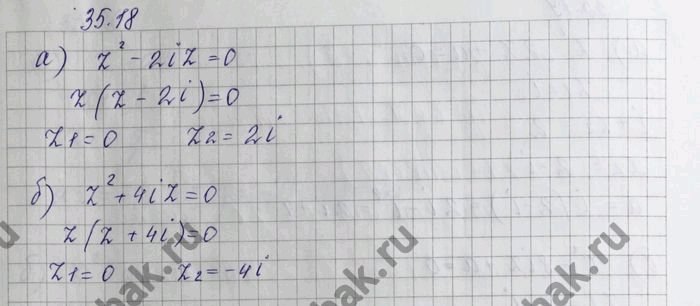 35.18
а) z² - 2iz = 0
z(z - 2i) = 0
z1 = 0 z2 = 2i
б) z² + 4iz = 0
z(z + 4i) = 0
z1 = 0 z2 = -4i
bak.ru
bak.ru